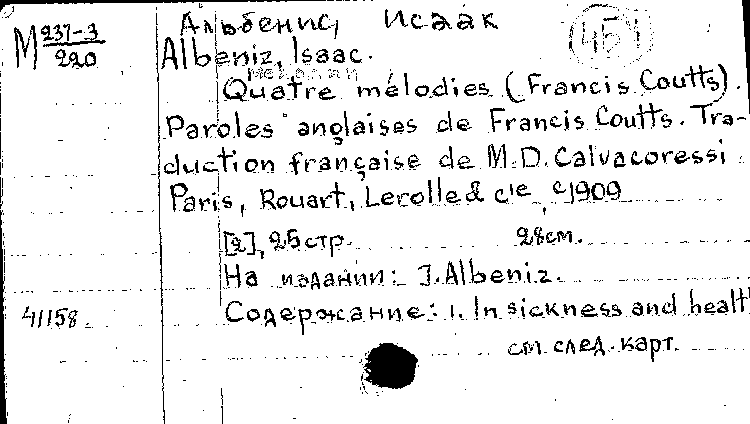 Альбенис, Исаак
451
М 237-3
220
Albeniz, Isaac.
Мелодии
Quatre mélodies (Francis Coutts).
Paroles anglaises de Francis Coutts. Tra-
duction française de M.D. Calvacoressi
Paris, Rouart, Lerolle & cie, c1909
[2], 25 стр. 28 см.
На издании: J. Albeniz.
41158
Содержание: 1. In sickness and healt
см. след. карт.